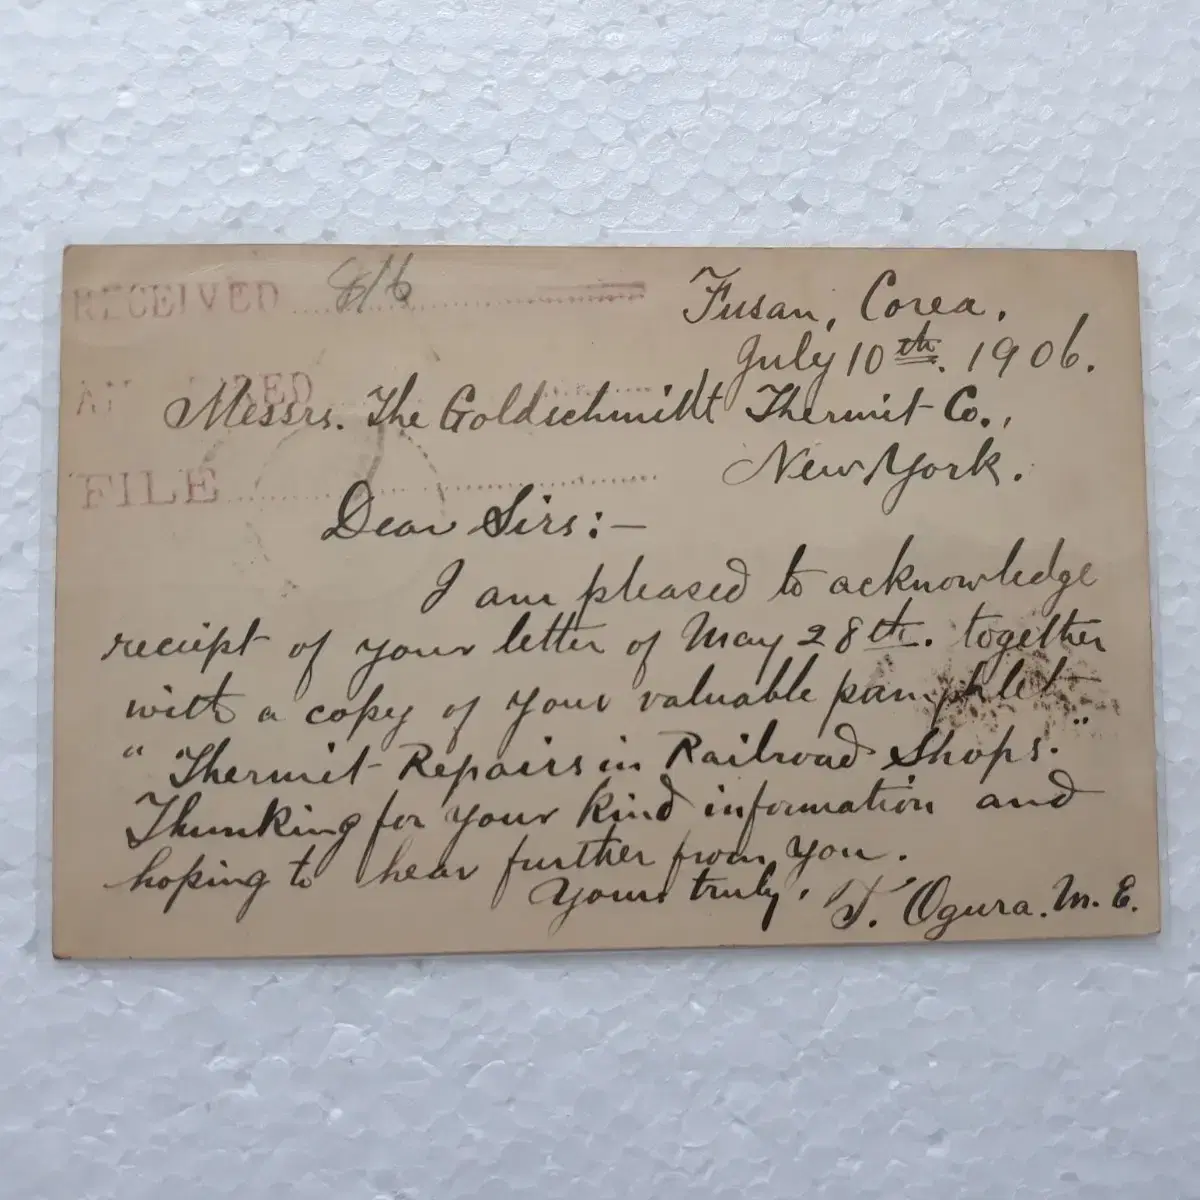 RECEIVED 8/6
Fusan, Corea.
July 10th. 1906.
Messrs. The Goldschmidt Thermit Co.,
FILE
New York.
Dear Sirs:—
I am pleased to acknowledge
receipt of your letter of May 28th. together
with a copy of your valuable pamphlet
"Thermit Repairs in Railroad Shops."
Thanking for your kind information and
hoping to hear further from you.
Yours truly,
T. Ogura. M. E.